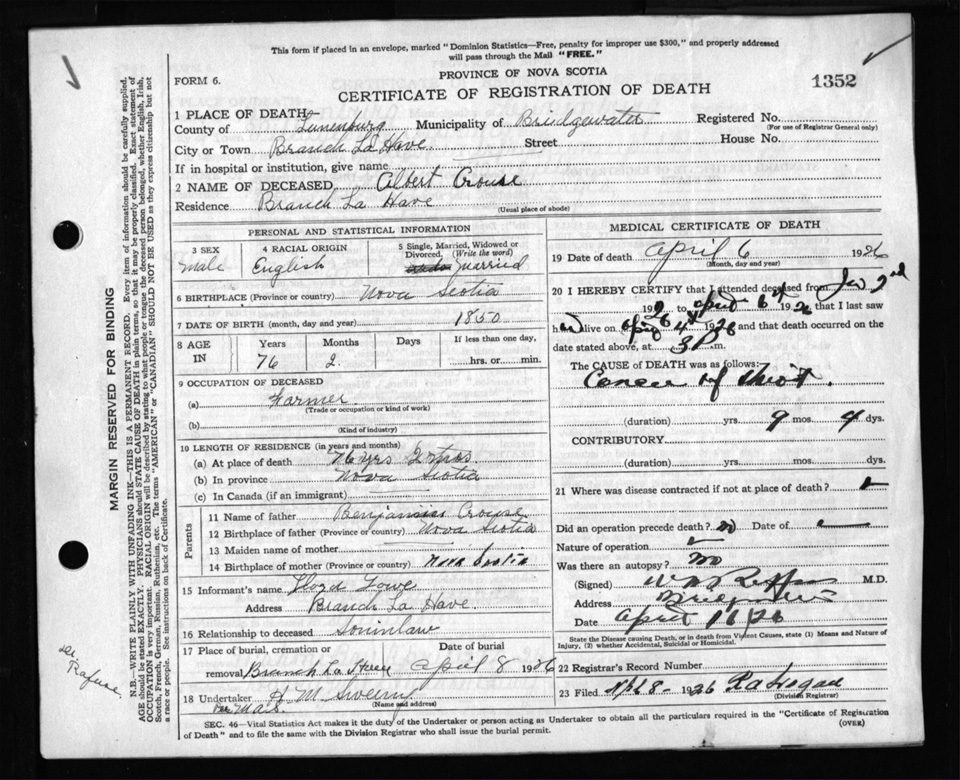 This form if placed in an envelope, marked "Dominion Statistics—Free, penalty for improper use $300," and properly addressed
will pass through the Mail "FREE."
FORM 6.
PROVINCE OF NOVA SCOTIA
CERTIFICATE OF REGISTRATION OF DEATH
1352
1 PLACE OF DEATH
County of Lunenburg Municipality of Bridgewater Registered No.
(For use of Registrar General only)
City or Town Branch La Have Street House No.
If in hospital or institution, give name
2 NAME OF DECEASED Albert Crouse
Residence Branch La Have
(Usual place of abode)
PERSONAL AND STATISTICAL INFORMATION
3 SEX Male
4 RACIAL ORIGIN English
5 Single, Married, Widowed or Divorced. (Write the word) Married
6 BIRTHPLACE (Province or country) Nova Scotia
7 DATE OF BIRTH (month, day and year) 1850
8 AGE IN Years 76 Months 2 Days If less than one day, hrs. or min.
9 OCCUPATION OF DECEASED
(a) Farmer
(Trade or occupation or kind of work)
(b)
(Kind of industry)
10 LENGTH OF RESIDENCE (in years and months)
(a) At place of death 76 yrs 2 mos
(b) In province Nova Scotia
(c) In Canada (if an immigrant)
Parents
11 Name of father Benjamin Crouse
12 Birthplace of father (Province or country) Nova Scotia
13 Maiden name of mother
14 Birthplace of mother (Province or country) Nova Scotia
15 Informant's name Lloyd Lowe
Address Branch La Have
16 Relationship to deceased Soninlaw
17 Place of burial, cremation or Date of burial
removal Branch La Have April 8 1926
18 Undertaker H M
(Name and address)
MEDICAL CERTIFICATE OF DEATH
19 Date of death April 6 1926
(Month, day and year)
20 I HEREBY CERTIFY that I attended deceased from
192 to April 6th 1926 that I last saw
h alive on April 4th 1926 and that death occurred on the
date stated above, at 3P m.
The CAUSE of DEATH was as follows:
Cancer of throat.
(duration) yrs. 9 mos. 4 dys.
CONTRIBUTORY
(duration) yrs. mos. dys.
21 Where was disease contracted if not at place of death?
Did an operation precede death? no Date of
Nature of operation
Was there an autopsy? no
(Signed) M.D.
Address Bridgewater
Date April 16 26
State the Disease causing Death, or in death from Violent Causes, state (1) Means and Nature of
Injury, (2) whether Accidental, Suicidal or Homicidal.
22 Registrar's Record Number
23 Filed 8- 1926
(Division Registrar)
SEC. 46—Vital Statistics Act makes it the duty of the Undertaker or person acting as Undertaker to obtain all the particulars required in the "Certificate of Registration
of Death" and to file same with the Division Registrar who shall issue the burial permit.
(OVER)
MARGIN RESERVED FOR BINDING
N.B.—WRITE PLAINLY WITH UNFADING INK—THIS IS A PERMANENT RECORD. Every item of information should be carefully supplied.
AGE should be stated EXACTLY. PHYSICIANS should STATE CAUSE OF DEATH in plain terms, so that it may be properly classified. Exact statement of
OCCUPATION is very important. RACIAL ORIGIN will be described by stating to what people or tongue the deceased person belonged, whether English, Irish,
Scotch, French, German, Russian, Ruthenian, etc. The terms "AMERICAN" or "CANADIAN" SHOULD NOT BE USED as they express citizenship but not
a race or people. See instructions on back of Certificate.